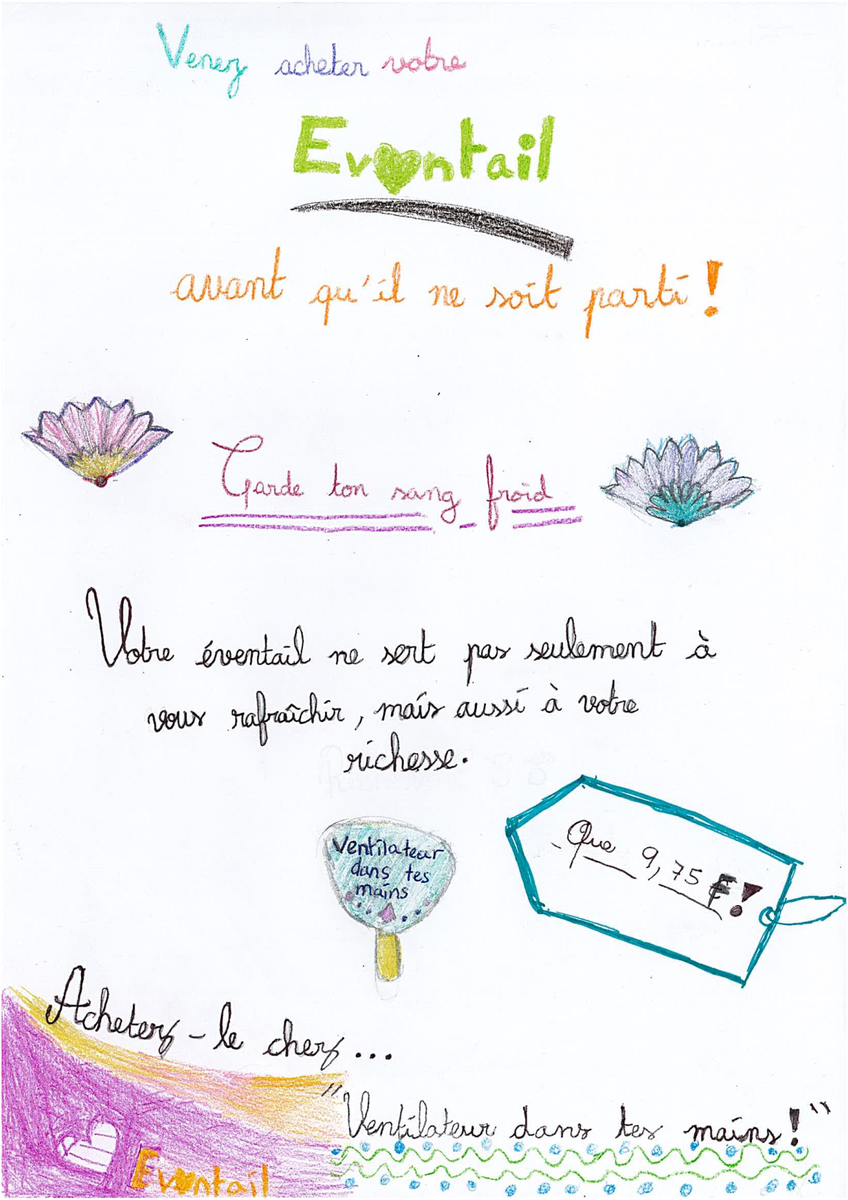 Venez acheter votre
Ev♥ntail
avant qu'il ne soit parti !
Garde ton sang froid
Votre éventail ne sert pas seulement à
vous rafraîchir, mais aussi à votre
richesse.
Ventilateur
dans tes
mains
Que 9,75 € !
Achetez-le chez...
"Ventilateur dans tes mains ! "
Ev♥ntail